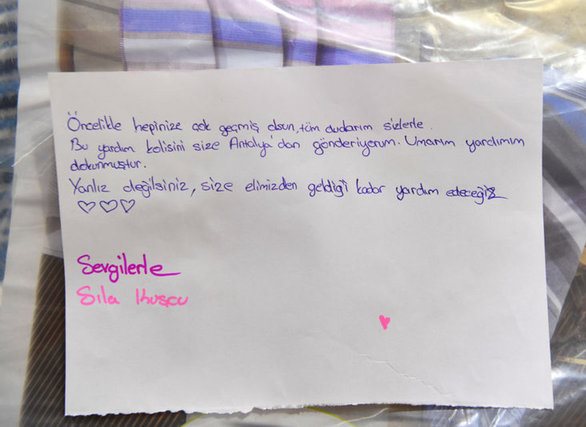 Öncelikle hepinize çok geçmiş olsun, tüm dualarım sizlerle.
Bu yardım kolisini size Antalya'dan gönderiyorum. Umarım yardımım
dokunmuştur.
Yanlız değilsiniz, size elimizden geldiği kadar yardım edeceğiz
♡♡♡
Sevgilerle
Sıla Kuşcu
♥